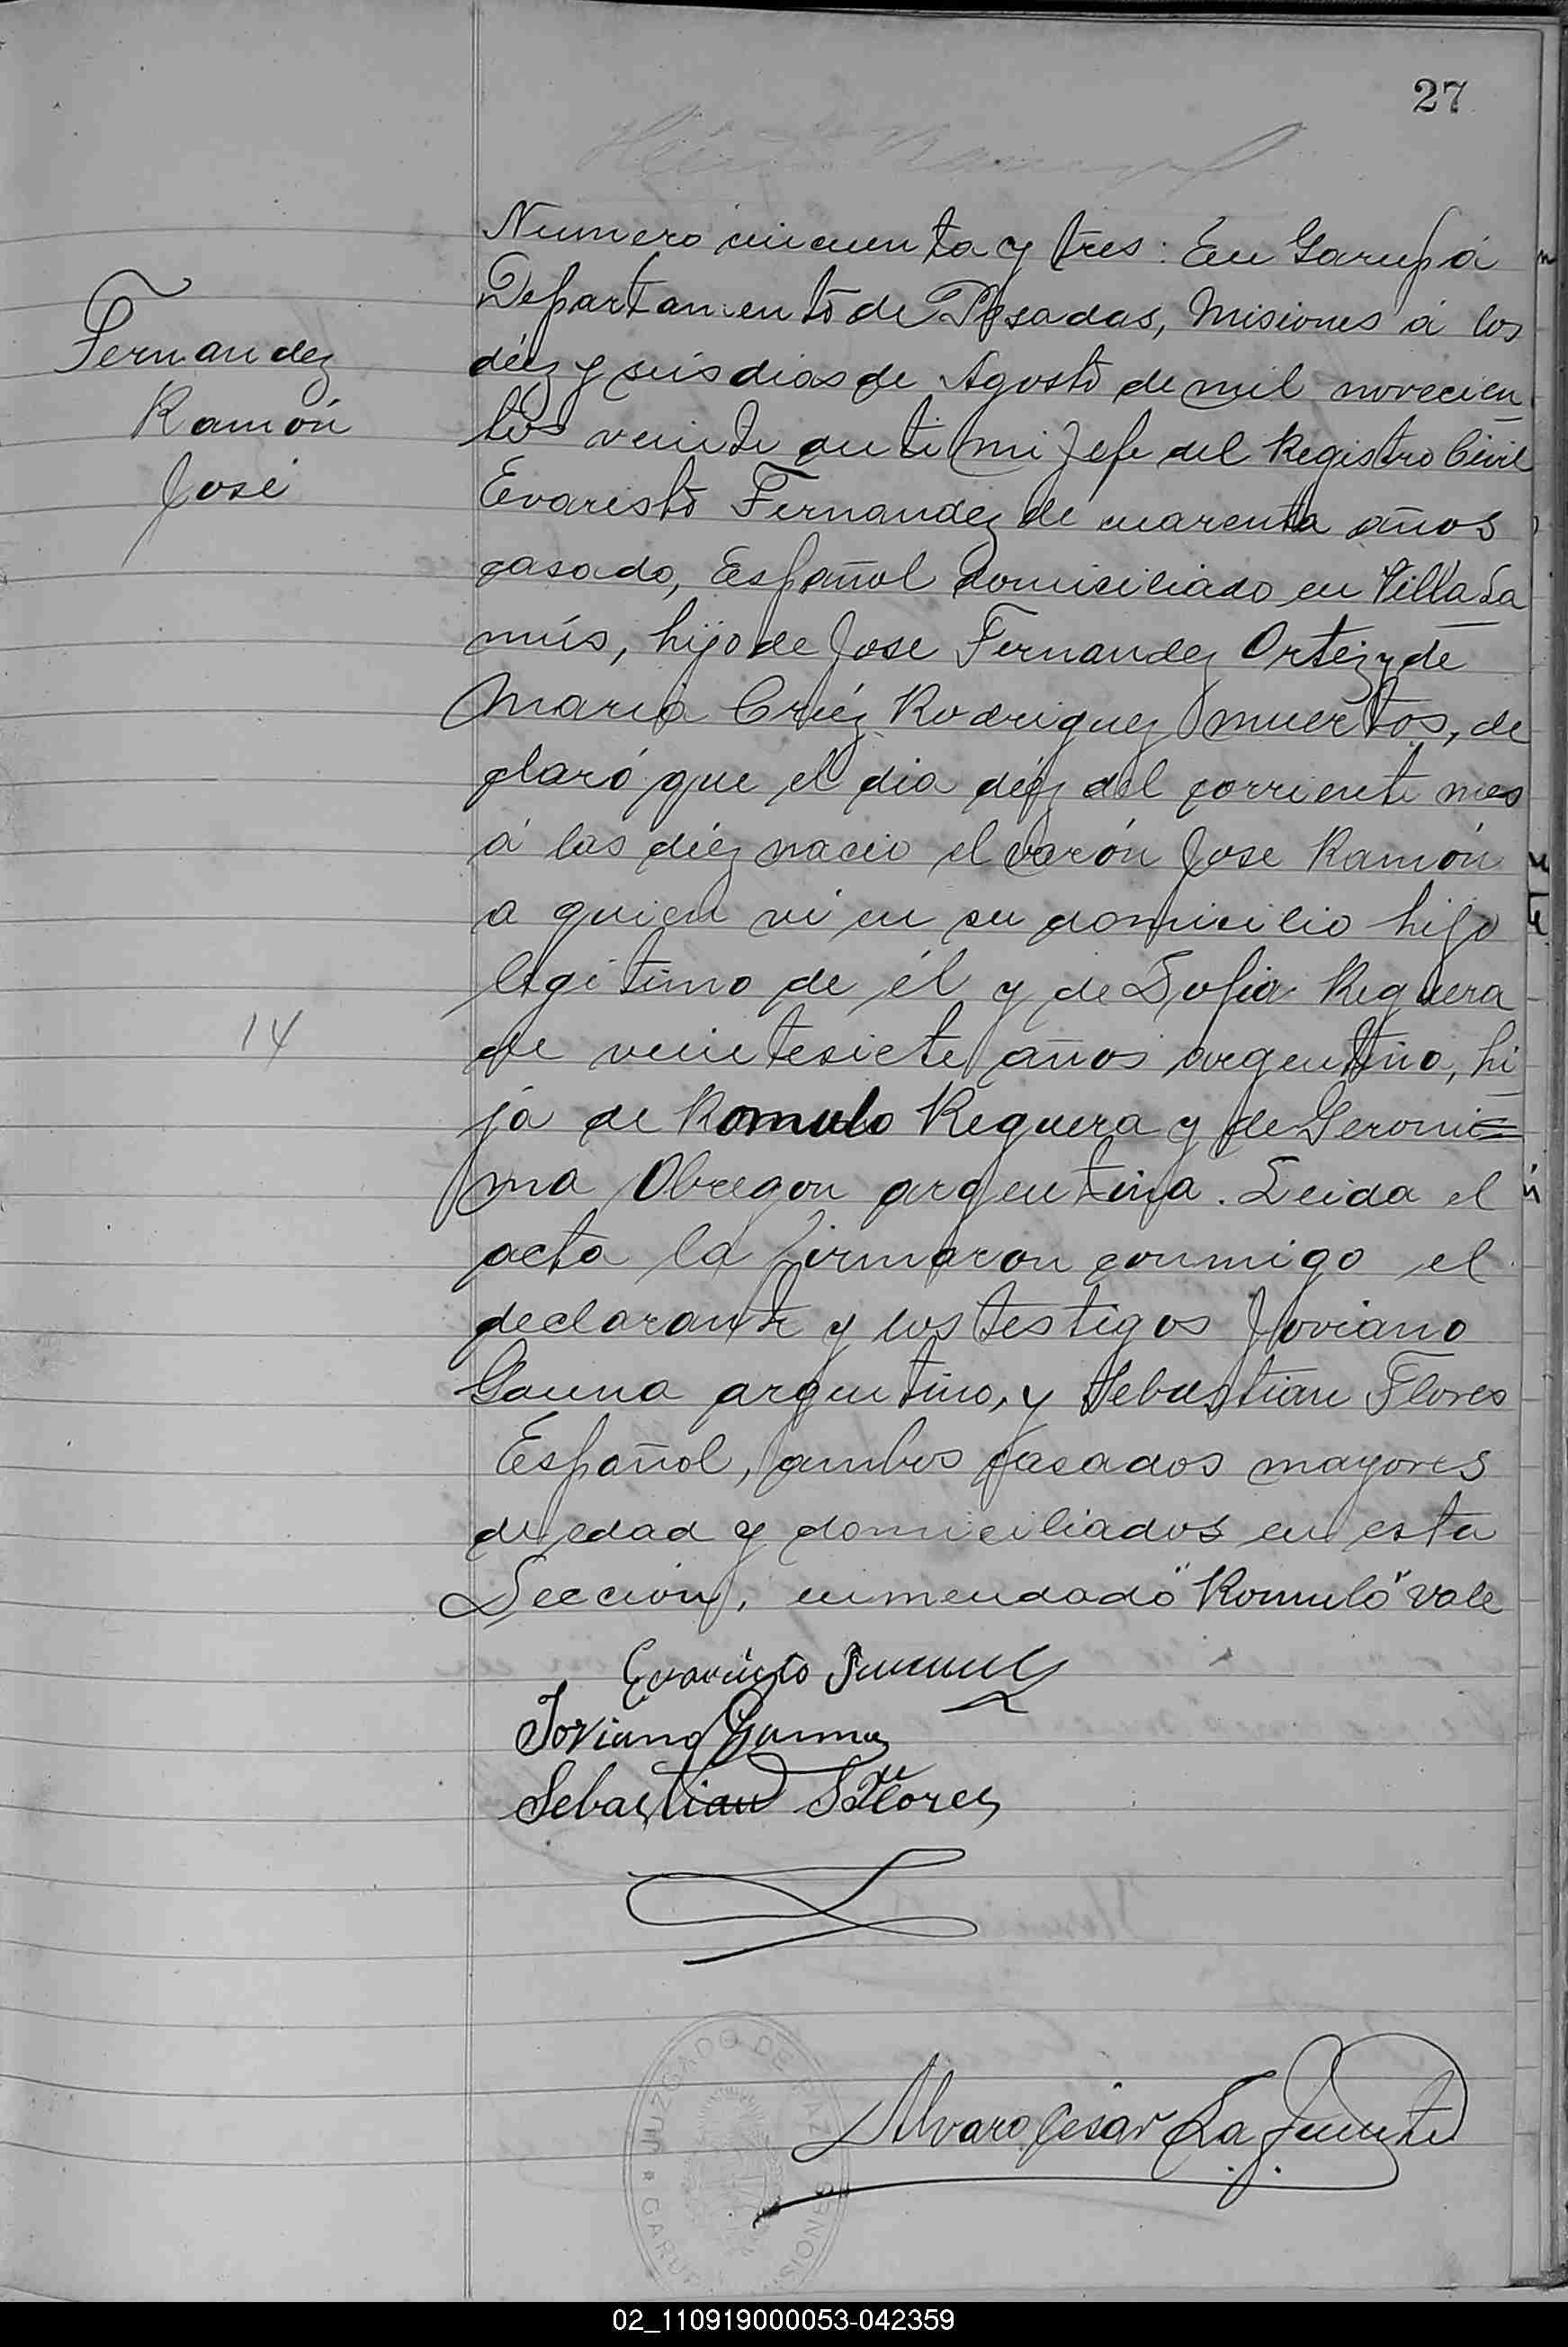 27
Fernandez
Ramón
José
14
Numero cincuenta y tres: En Garupá
Departamento de Posadas, Misiones á los
diéz y seis dias de Agosto de mil novecien
tos veinte ante mi Jefe del Registro Civil
Evaristo Fernandez de cuarenta años
casado, Español domiciliado en Villa La
nús, hijo de Jose Fernandez Ortéz y de
Maria Crúz Rodriguez muertos, de
claró que el dia diéz del corriente mes
á las diéz nacio el varón Jose Ramón
a quien vi en su domicilio hijo
legitimo de él y de Sofia Reguera
de veintesiete años argentino, hi
ja de Romulo Reguera y de Geroni=
ma Obregon argentina. Leida el
acta la firmaron conmigo el
declarante y los testigos Joviano
Gauna argentino, y Sebastian Flores
Español, ambos casados mayores
de edad y domiciliados en esta
Sección, enmendado "Romulo" vale
Evaristo Fernandez
Joviano Gauna
Sebastian Flores
Alvaro Cesar La Fuente
JUZGADO DE PAZ
GARUP
MISIONES
02_110919000053-042359